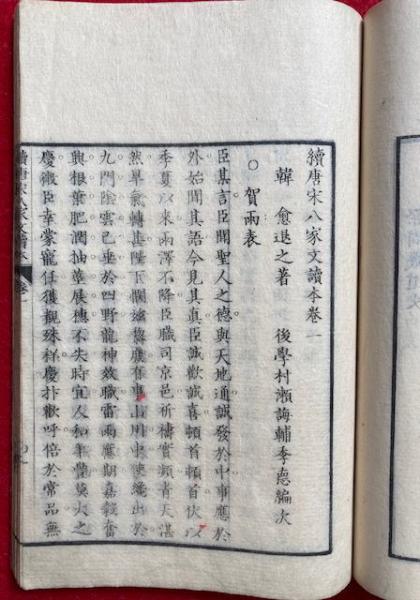 續唐宋八家文讀本卷一
韓 愈退之著 後學村瀨誨輔季德編次
○賀雨表
臣某言臣聞聖人之德與天地通誠發於中事應於
外始聞其語今見其真臣誠歡誠喜頓首頓首伏以
季夏以來雨澤不降臣職司京邑祈禱實頻青天湛
然旱氣轉甚陛下憫茲黎庶有事山川中使纔出於
九門陰雲已垂於四野龍神效職雷雨應期嘉穀奮
興根葉肥潤抽莖展穗不失時宜人和年豐莫大之
慶微臣幸蒙寵任獲覩殊祥慶抃歡呼倍於常品無
續唐宋八家文讀本 卷一